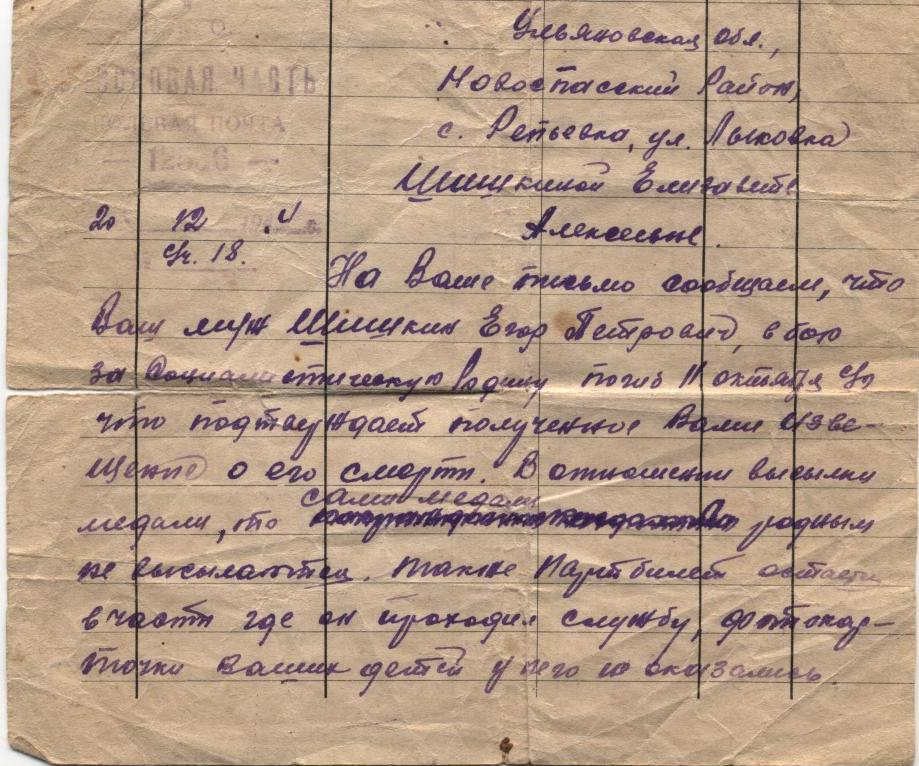 Ульяновская обл.,
Новоспасский Район,
с. Репьевка, ул. Лыковка
ПОЛЕВАЯ ПОЧТА
Шишкиной Елизавете
20 12 4
Алексеевне.
18.
На Ваше письмо сообщаем, что
Ваш муж Шишкин Егор Петрович, в бою
за Социалистическую Родину погиб 11 октября
что подтверждает полученное Вами изве-
щение о его смерти. В отношении высылки
сами медали
медали, то родным
не высылаются. также Партбилет остается
в части где он проходил службу, фотокар-
точки Ваших детей у него не оказались